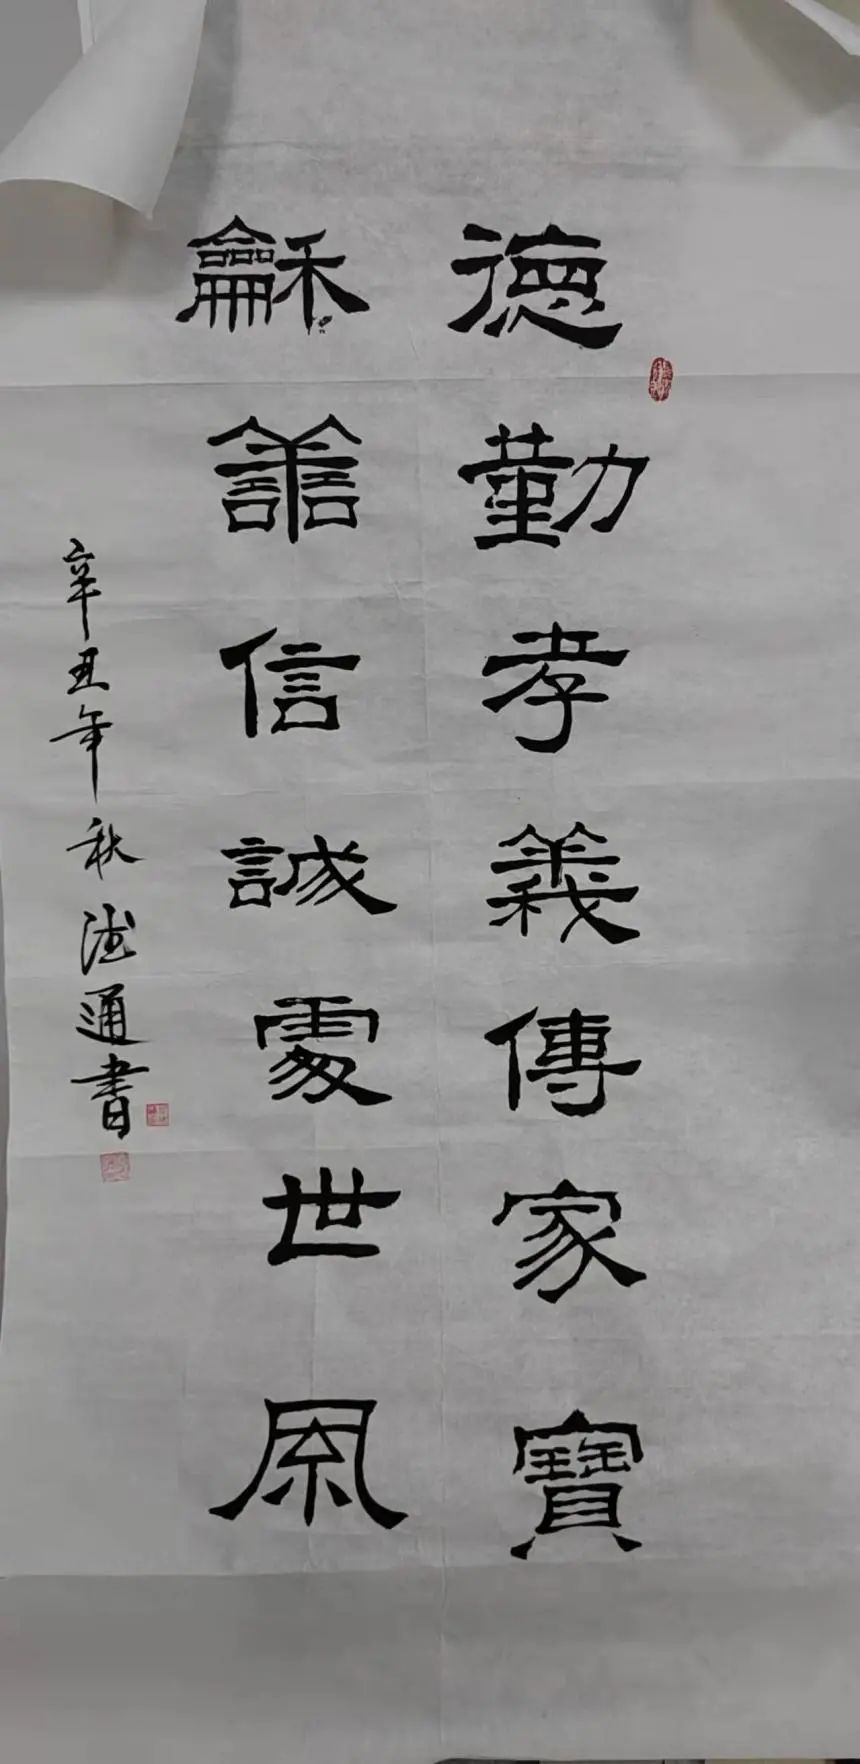 德勤孝義傳家寶
龢譱信誠處世風
辛丑年秋 德通書